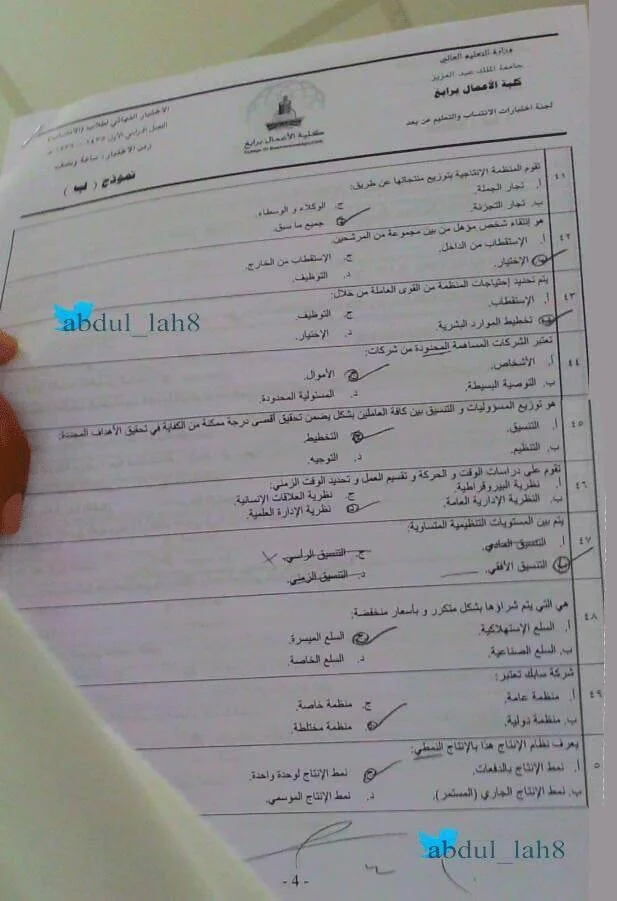 وزارة التعليم العالي
جامعة الملك عبد العزيز
كلية الأعمال برابغ
لجنة اختبارات الانتساب والتعليم عن بعد
كلية الأعمال برابغ
الاختبار النهائي لطلاب
الفصل الدراسي الأول
زمن الاختبار: ساعة ونصف
نموذج ( ب )
٤١ تقوم المنظمة الإنتاجية بتوزيع منتجاتها عن طريق:
أ. تجار الجملة. ج. الوكلاء و الوسطاء.
ب. تجار التجزئة. جميع ما سبق.
٤٢ هو إنتقاء شخص مؤهل من بين مجموعة من المرشحين.
أ. الإستقطاب من الداخل. ج. الإستقطاب من الخارج.
الإختيار. د. التوظيف.
٤٣ يتم تحديد إحتياجات المنظمة من القوى العاملة من خلال:
أ. الإستقطاب. ج. التوظيف.
تخطيط الموارد البشرية. د. الإختيار.
abdul_lah8
٤٤ تعتبر الشركات المساهمة المحدودة من شركات:
أ. الأشخاص. ج. الأموال.
ب. التوصية البسيطة. د. المسئولية المحدودة.
٤٥ هو توزيع المسؤوليات و التنسيق بين كافة العاملين بشكل يضمن تحقيق أقصى درجة ممكنة من الكفاية في تحقيق الأهداف المحددة:
أ. التنسيق. التخطيط.
ب. التنظيم. د. التوجيه.
٤٦ تقوم على دراسات الوقت و الحركة و تقسيم العمل و تحديد الوقت الزمني:
أ. نظرية البيروقراطية. ج. نظرية العلاقات الإنسانية.
ب. النظرية الإدارية العامة. د. نظرية الإدارة العلمية.
٤٧ يتم بين المستويات التنظيمية المتساوية:
أ. التنسيق العادي. ج. التنسيق الرأسي.
ب. التنسيق الأفقي. د. التنسيق الزمني.
٤٨ هي التي يتم شراؤها بشكل متكرر و بأسعار منخفضة:
أ. السلع الإستهلاكية. ج. السلع الميسرة.
ب. السلع الصناعية. د. السلع الخاصة.
٤٩ شركة سابك تعتبر:
أ. منظمة عامة. ج. منظمة خاصة.
ب. منظمة دولية. د. منظمة مختلطة.
٥ يعرف نظام الإنتاج هذا بالإنتاج النمطي:
أ. نمط الإنتاج بالدفعات. ج. نمط الإنتاج لوحدة واحدة.
ب. نمط الإنتاج الجاري (المستمر). د. نمط الإنتاج الموسمي.
abdul_lah8
- 4 -